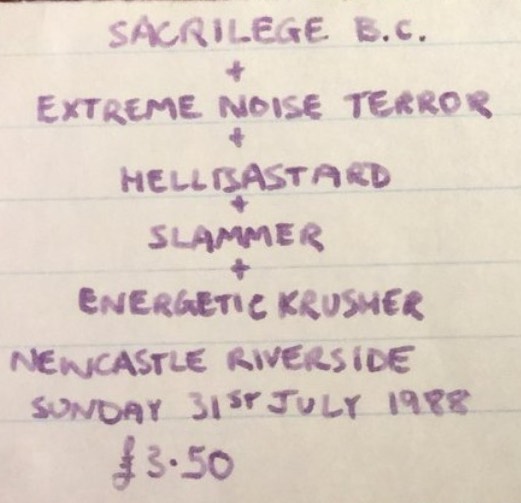 SACRILEGE B.C.
+
EXTREME NOISE TERROR
+
HELLBASTARD
+
SLAMMER
+
ENERGETIC KRUSHER
NEWCASTLE RIVERSIDE
SUNDAY 31ST JULY 1988
£3.50